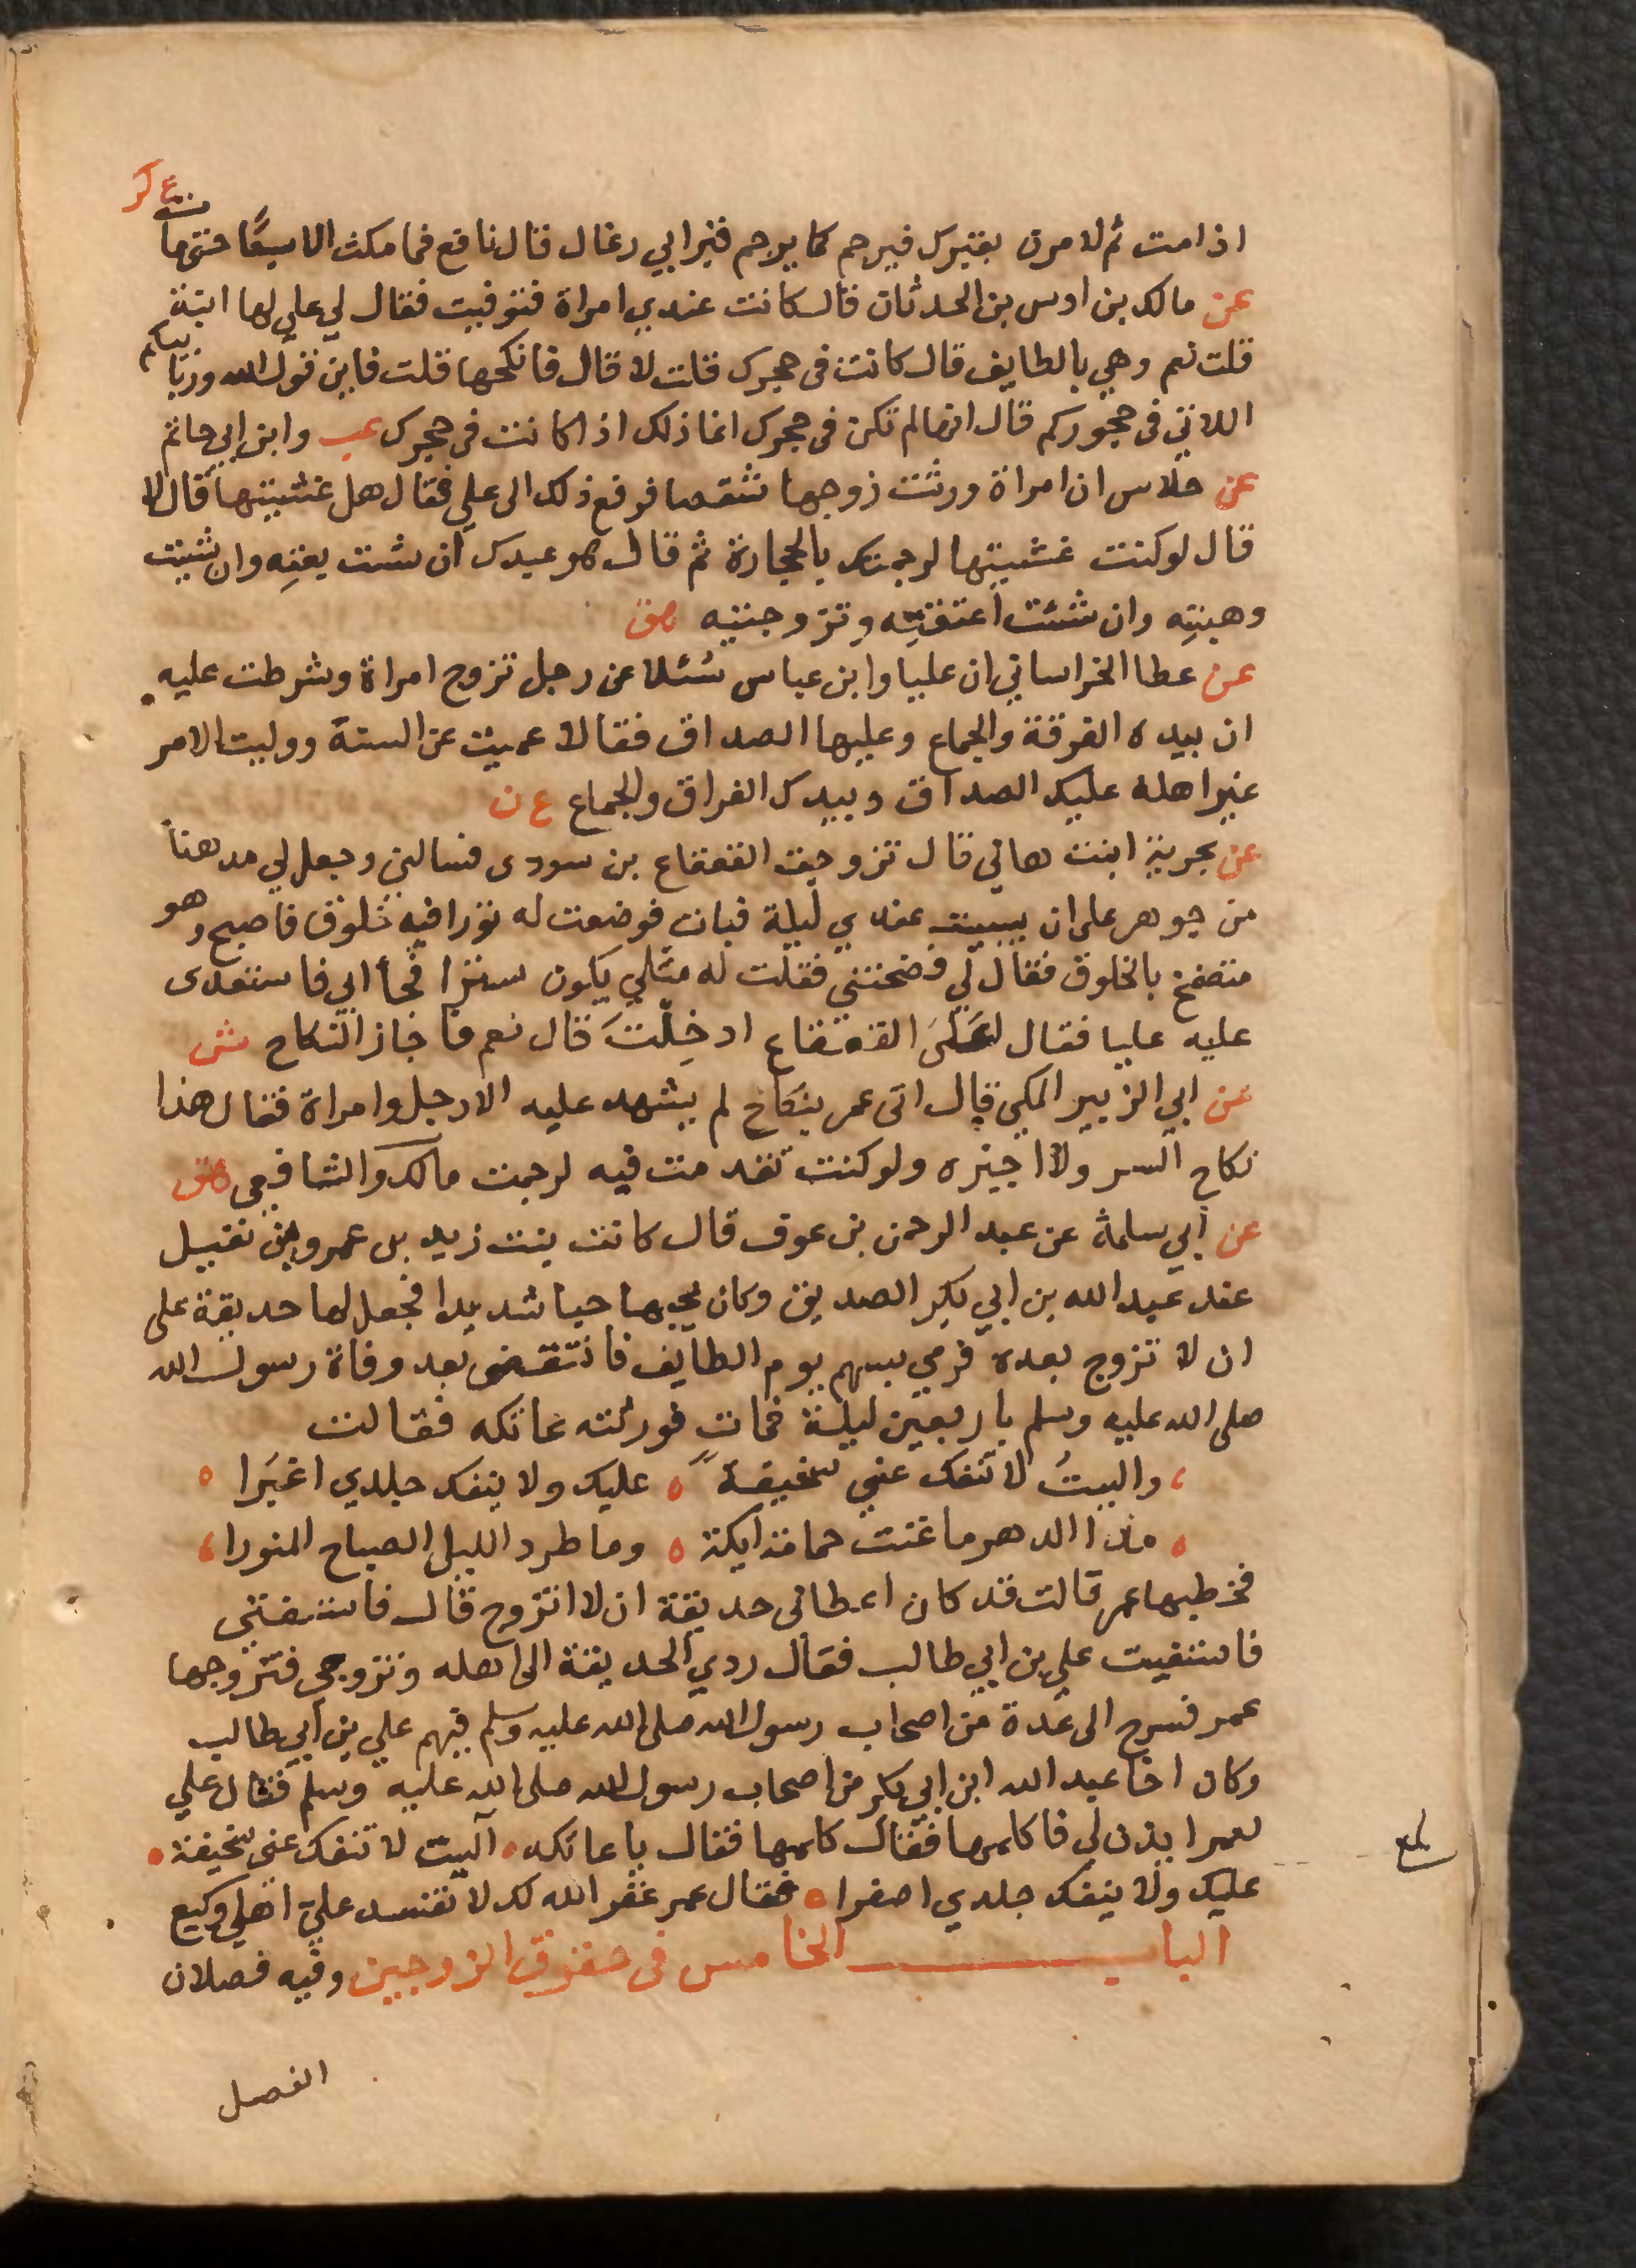 ع كر
اذا مت ثم لامرن بقبرك فيرجم كما يرجم قبر ابي رغال قال نافع فما مكث الا سبعًا حتى مات
عن مالك بن اوس بن الحدثان قال كانت عندي امراة فتوفيت فقال لي علي لها ابنة
قلت نعم وهي بالطايف قال كانت فى حجرك قلت لا قال فانكحها قلت فاين قول الله وربايبكم
اللاتي فى حجوركم قال انها لم تكن فى حجرك انما ذلك اذا كانت فى حجرك عب وابن ابي حاتم
عن خلاس ان امراة ورثت زوجها شقصا فرفع ذلك الى علي فقال هل غشيتها قال لا
قال لو كنت غشيتها لرجمتك بالحجارة ثم قال هو عبدك ان شت بعتِه وان شيت
وهبتِه وان شئت اعتقتِه وتزوجتيه هق
عن عطا الخراساني ان عليا وابن عباس سُئلا عن رجل تزوج امراة وشرطت عليه
ان بيده الفرقة والجماع وعليها الصداق فقالا عميت عن السنة ووليت الامر
غير اهله عليك الصداق وبيدك الفراق والجماع ع ن
عن بحرية ابنت هاني قال تزوجت القعقاع بن سودى فسالني وجعل لي مدهنا
من جوهر على ان يبيت عندي ليلة فبات فوضعت له تورا فيه خلوق فاصبح وهو
متضمخ بالخلوق فقال لي فضحتني فقلت له مثلي يكون سترا فجأ ابي فاستعدى
عليه عليا فقال لعلي القعقاع ادخلتَ قال نعم فاجاز النكاح ش
عن ابي الزبير المكي قال اتى عمر بنكاح لم يشهد عليه الا رجل وامراة فقال هذا
نكاح السر ولا اجيزه ولو كنت تقدمت فيه لرجمت مالك والشافعي هق
عن ابي سلمة عن عبد الرحمن بن عوف قال كانت بنت زيد بن عمرو بن نفيل
عند عبد الله بن ابي بكر الصديق وكان يحبها حبا شديدا فجعل لها حديقة على
ان لا تزوج بعده فرمي بسهم يوم الطايف فانتقض بعد وفاة رسول الله
صلى الله عليه وسلم باربعين ليلة فمات فورثته عاتكه فقالت
واليتُ لا تنفك عيني سخيفة عليك ولا ينفك جلدي اغبرا
مدا الدهر ما غنت حمامة ايكة وما طرد الليل الصباح المنورا
فخطبها عمر قالت قد كان اعطاني حديقة ان لا اتزوج قال فاستفتي
فاستفيت علي بن ابي طالب فقال ردي الحديقة الى اهله وتزوجي فتزوجها
عمر فسرح الى عدة من اصحاب رسول الله صلى الله عليه وسلم فيهم علي بن ابي طالب
وكان اخا عبد الله ابن ابي بكر من اصحاب رسول الله صلى الله عليه وسلم فقال علي
لعمر ايذن لي فاكلمها فقال كلمها فقال يا عاتكه آليت لا تنفك عيني سخيفة
عليك ولا ينفك جلدي اصفرا فقال عمر غفر الله لك لا تفسد علي اهلي وكيع
الباب الخامس فى حقوق الزوجين وفيه فصلان
الفصل